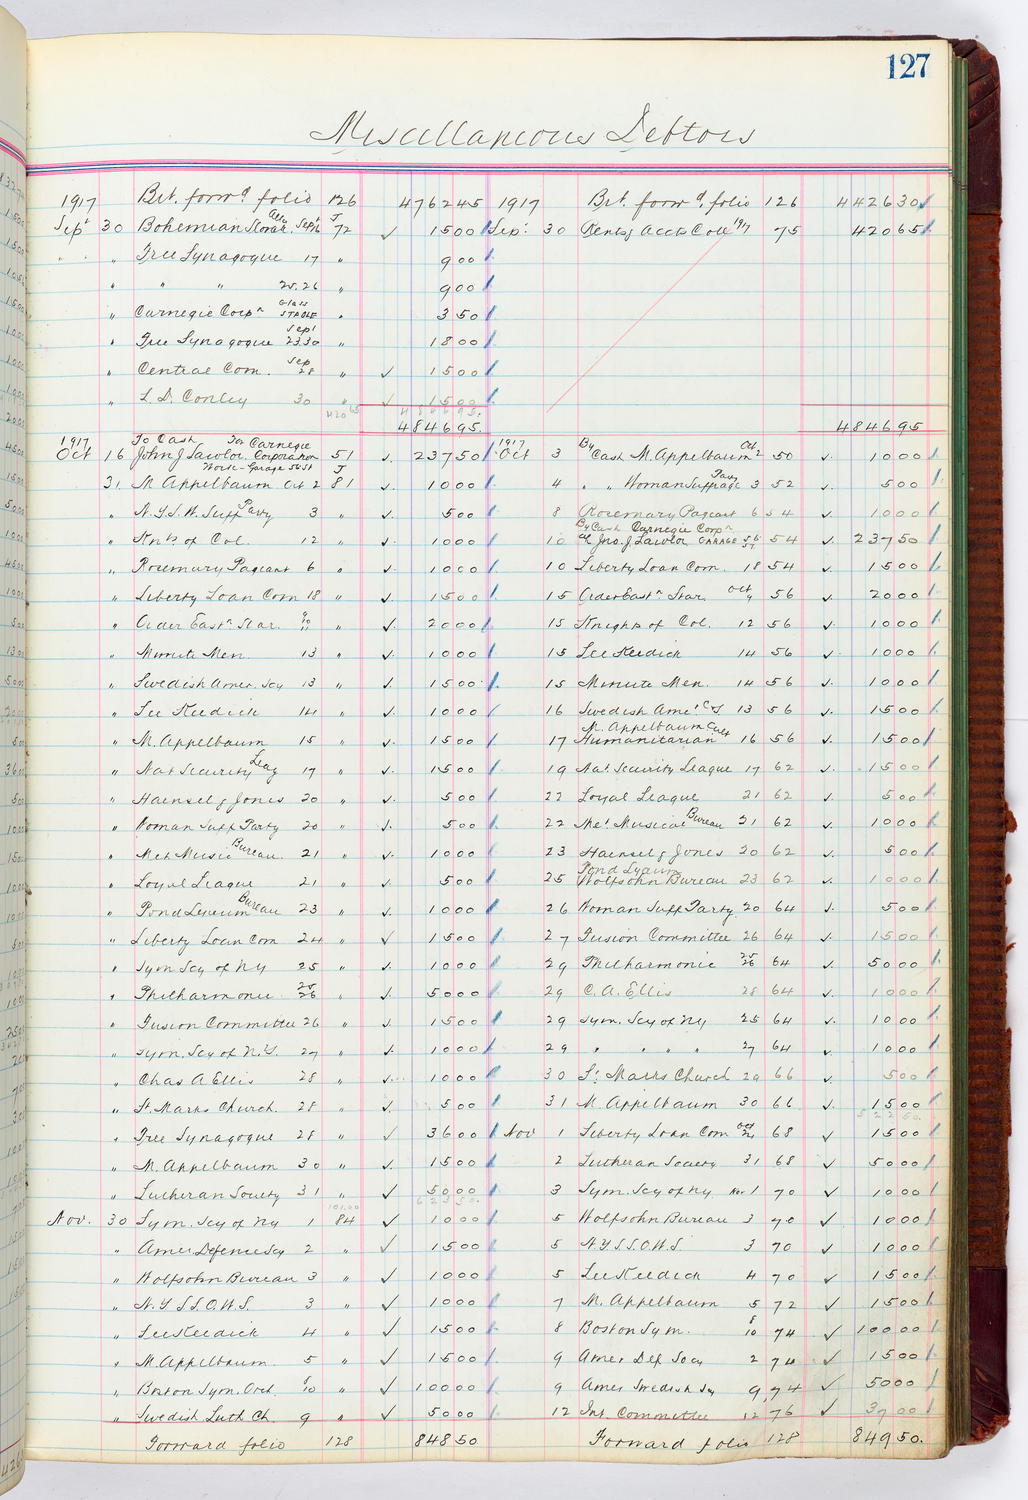 127
Miscellaneous Debtors
1917 Brt. forwd folio 126 476245 1917 Brt. forwd folio 126 442630
Sept 30 Bohemian Sept J 72 ✓ 1500 Sep: 30 Rents Accts Coll 1917 75 42065
" " Free Synagogue 17 " 900
" " " 25.26 " 900
" Carnegie Corpn Glass STAGE " 350
" Free Synagogue Sept 23 30 " 1800
" Central Com. Sep 28 " ✓ 1500
" L. D. Conley 30 " ✓ 1500
42065 484695.
484695. 484695
1917 To Cash for Carnegie 1917
Oct 16 John J Lawlor Corporation 51 ✓ 23750 Oct 3 By Cash M. Appelbaum Oct 2 50 ✓ 1000
Work - Garage 56 St J
31 M. Appelbaum Oct 2 81 ✓ 1000 4 " " Woman Suffrage Party 3 52 ✓ 500
" N.Y.S.W. Suff Party 3 " ✓ 500 8 Rosemary Pageant 6 54 ✓ 1000
" Knts of Col. 12 " ✓ 1000 10 By Cash Carnegie Corpn Jno. J Lawlor GARAGE 56 57 54 ✓ 23750
" Rosemary Pageant 6 " ✓ 1000 10 Liberty Loan Com. 18 54 ✓ 1500
" Liberty Loan Com 18 " ✓ 1500 15 Order Eastn Star Oct 9 56 ✓ 2000
" Order Eastn Star. " ✓ 2000 15 Knights of Col. 12 56 ✓ 1000
" Minute Men. 13 " ✓ 1000 15 Lee Keedick 14 56 ✓ 1000
" Swedish Amer. Scy 13 " ✓ 1500 15 Minute Men. 14 56 ✓ 1000
" Lee Keedick 14 " ✓ 1000 16 Swedish Amer 13 56 ✓ 1500
" M. Appelbaum 15 " ✓ 1500 17 M. Appelbaum Cult Humanitarian 16 56 ✓ 1500
" Nat Security Leag 17 " ✓ 1500 19 Nat. Security League 17 62 ✓ 1500
" Haensel & Jones 20 " ✓ 500 22 Loyal League 21 62 ✓ 500
" Woman Suff Party 20 " ✓ 500 22 Met Musical Bureau 21 62 ✓ 1000
" Met Music Bureau. 21 " ✓ 1000 23 Haensel & Jones 20 62 ✓ 500
" Loyal League 21 " ✓ 500 25 Pond Lyceum Wolfsohn Bureau 23 62 ✓ 1000
" Pond Lyceum Bureau 23 " ✓ 1000 26 Woman Suff Party 20 64 ✓ 500
" Liberty Loan Com 24 " ✓ 1500 27 Fusion Committee 26 64 ✓ 1500
" Sym Scy of NY 25 " ✓ 1000 29 Philharmonic 25 26 64 ✓ 5000
" Philharmonic 25 26 " ✓ 5000 29 C. A. Ellis 28 64 ✓ 1000
" Fusion Committee 26 " ✓ 1500 29 Sym. Scy of NY 25 64 ✓ 1000
" Sym. Scy of N.Y. 27 " ✓ 1000 29 " " " " 27 64 ✓ 1000
" Chas A Ellis 28 " ✓ 1000 30 St Marks Church 29 66 ✓ 500
" St. Marks Church. 28 " ✓ 500 31 M. Appelbaum 30 66 ✓ 1500
" Free Synagogue 28 " ✓ 3600 Nov 1 Liberty Loan Com Oct 24 68 ✓ 1500
" M. Appelbaum 30 " ✓ 1500 2 Lutheran Society 31 68 ✓ 5000
" Lutheran Society 31 " ✓ 5000 3 Sym. Scy of NY Nov 1 70 ✓ 1000
Nov. 30 Sym. Scy of NY 1 84 ✓ 1000 5 Wolfsohn Bureau 3 70 ✓ 1000
" Amer Defence Scy 2 " ✓ 1500 5 N.Y.S.S.O.W.S 3 70 ✓ 1000
" Wolfsohn Bureau 3 " ✓ 1000 5 Lee Keedick 4 70 ✓ 1500
" N.Y S.S.O.W.S. 3 " ✓ 1000 7 M. Appelbaum 5 72 ✓ 1500
" Lee Keedick 4 " ✓ 1500 8 Boston Sym. 8 10 74 ✓ 10000
" M. Appelbaum. 5 " ✓ 1500 9 Amer Def Socy 2 74 ✓ 1500
" Boston Sym. Orch. 8 10 " ✓ 10000 9 Amer Swedish Scy 9 74 ✓ 5000
" Swedish Luth Ch. 9 " ✓ 5000 12 Int. Committee 12 76 ✓ 3700
Forward folio 128 84850 Forward folio 128 84950.